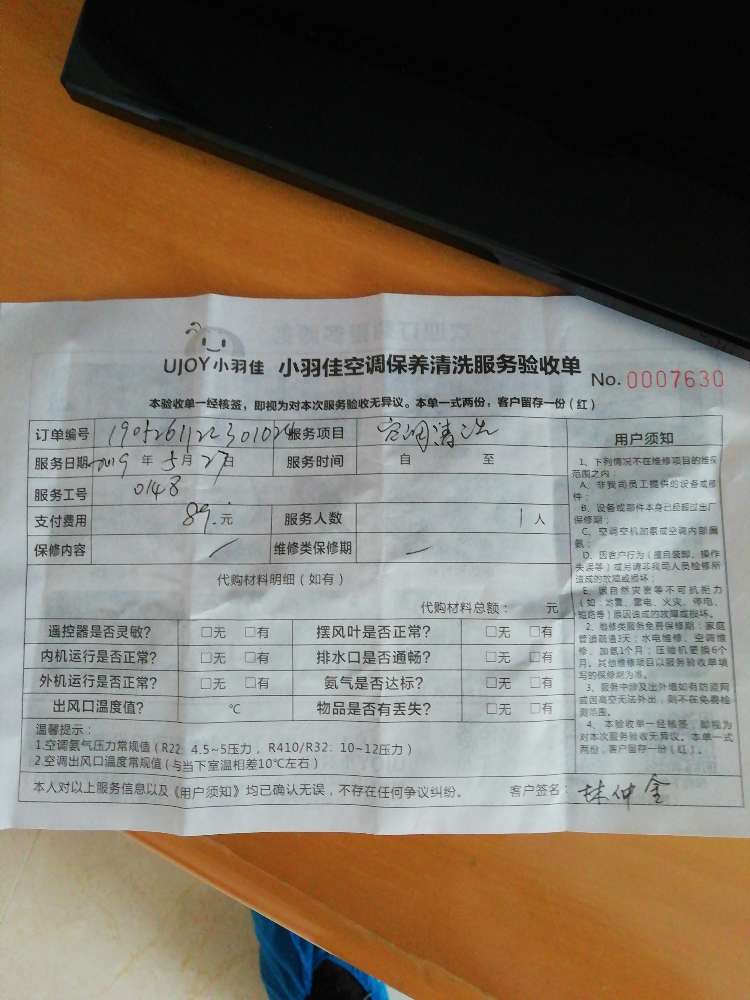 UJOY小羽佳 小羽佳空调保养清洗服务验收单 No. 0007630
本验收单一经核签，即视为对本次服务验收无异议。本单一式两份，客户留存一份（红）
订单编号 190526112230102 服务项目 空调清洗
服务日期 2019 年 5 月 27 日 服务时间 自 至
服务工号 0148
支付费用 89. 元 服务人数 1 人
保修内容 / 维修类保修期 —
代购材料明细（如有）
代购材料总额： 元
遥控器是否灵敏? □无 □有 摆风叶是否正常? □无 □有
内机运行是否正常? □无 □有 排水口是否通畅? □无 □有
外机运行是否正常? □无 □有 氨气是否达标? □无 □有
出风口温度值? ℃ 物品是否有丢失? □无 □有
温馨提示：
1.空调氨气压力常规值（R22：4.5~5压力，R410/R32：10~12压力）
2.空调出风口温度常规值（与当下室温相差10℃左右）
本人对以上服务信息以及《用户须知》均已确认无误，不存在任何争议纠纷。 客户签名： 林仲金
用户须知
1、下列情况不在维修项目的维保
范围之内：
A、非我司员工提供的设备或部
件；
B、设备或部件本身已经超过出厂
保修期；
C、空调空机加氨或空调内部漏
氨；
D、因客户行为（擅自装卸、操作
失误等）或另请非我司人员检修所
造成的故障或损坏；
E、因自然灾害等不可抗拒力
（如：地震、雷电、火灾、停电、
短路等）原因造成的故障或损坏。
2、维修类服务免费保修期：家庭
管道疏通3天；水电维修、空调维
修、加氨1个月；压缩机更换6个
月。其他维修项目以服务验收单填
写的保修期为准。
3、服务中涉及出外墙如有防盗网
或因高空无法外出，则不在免费检
测范围。
4、本验收单一经核签，即视为
对本次服务验收无异议。本单一式
两份，客户留存一份（红）。